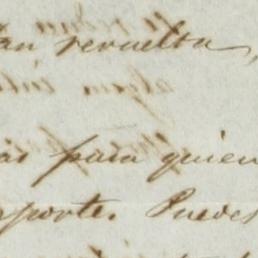 an revuelta,
as para quien
porte. Puedes